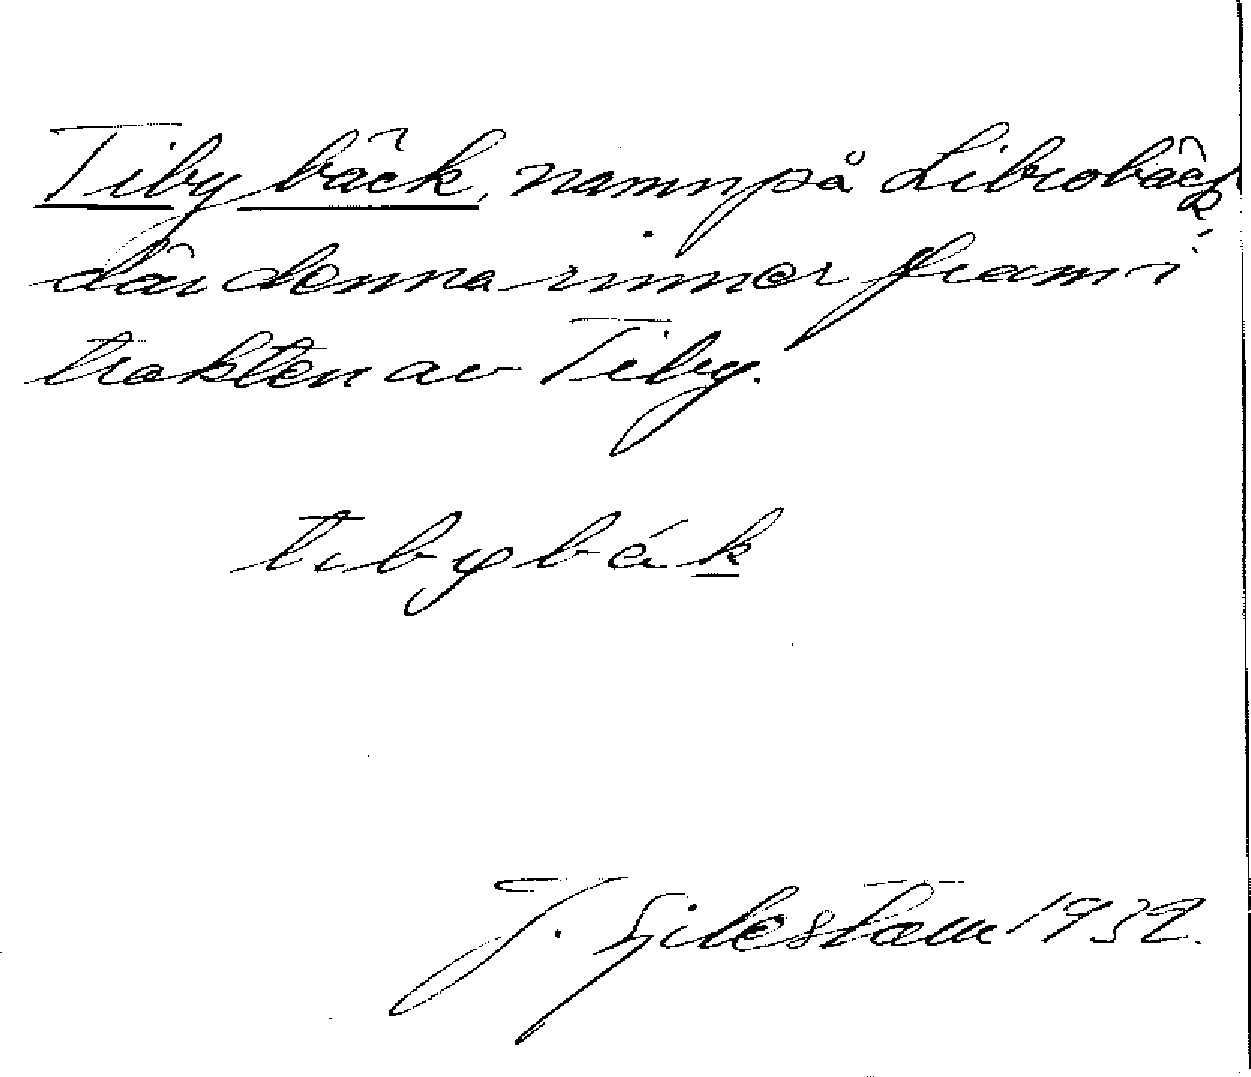 Tiby bäck, namn på Librobäck,
där denna rinner fram i
trakten av Tiby.
tibybäk
J. 1932.